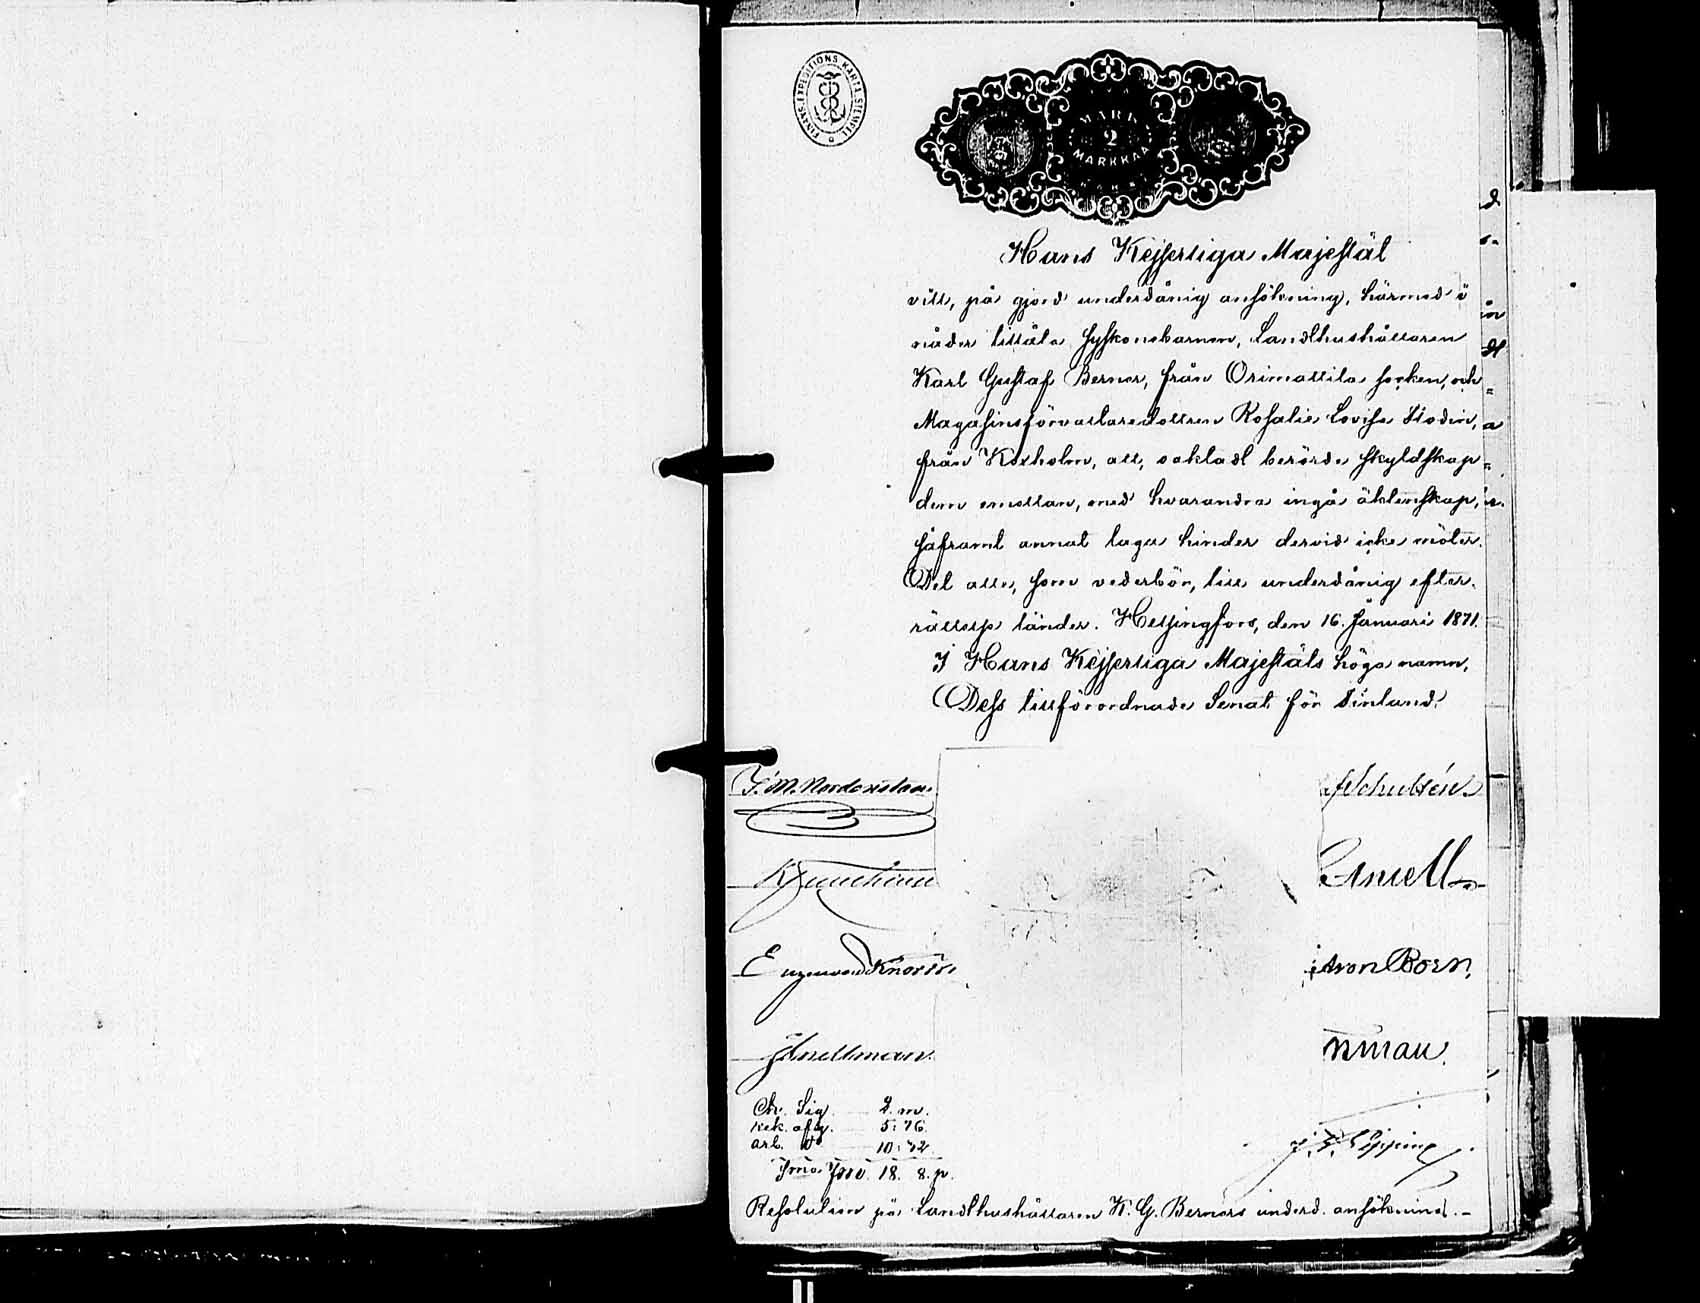 FINANS-EXPEDITIONS KARTA.STEMPEL
MARK
2
MARKKAA
Hans Kejserliga Majestät
vill, på gjord underdånig ansökning, härmed i
nåder tillåta syskonebarnen, Landthushållaren
Karl Gustaf Berner, från Orimattila socken, och
Magasinsförvaltaredottren Rosalie Lovisa
från Kexholm, att, oaktadt berörde skyldskap
dem emellan, med hvarandra ingå äktenskap,
såframt annat laga hinder dervid icke möter.
Det alle, som vederbör, till underdånig efter-
rättelse länder. Helsingfors, den 16. Januari 1871.
I Hans Kejserliga Majestäts höga namn,
Dess tillförordnade Senat för Finland.
J. M. Nordenstam. Schultén.
Furuhjelm
von Knorring von Born.
JSnellman.
Ch. Sig. 2. m.
rek. afg. 5: 76.
arl. do 10: 32
Smk 18. 8. p.
Resolution på Landthushållaren K. G. Berners underd. ansökning.-